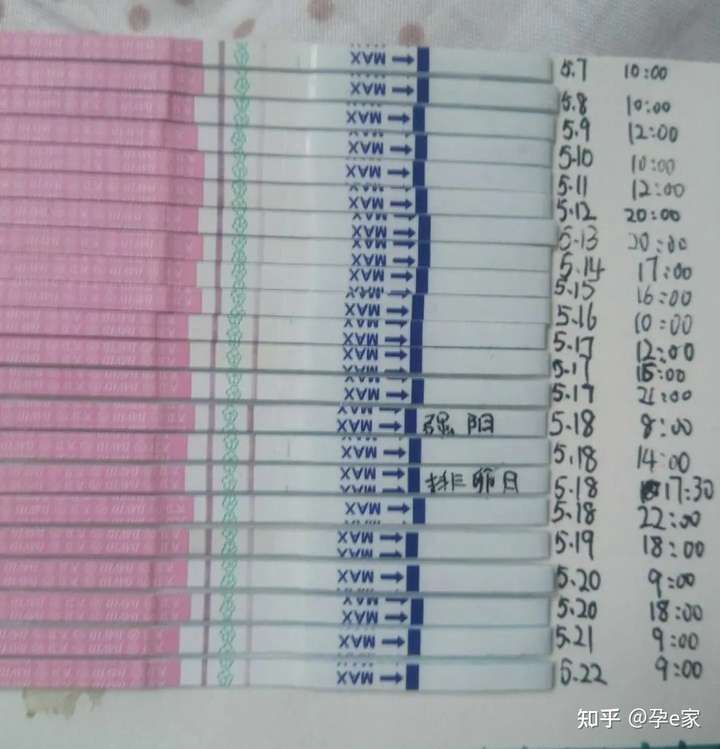 MAX 5.7 10:00
MAX 5.8 10:00
MAX 5.9 12:00
MAX 5.10 10:00
MAX 5.11 12:00
MAX 5.12 20:00
MAX 5.13 20:00
MAX 5.14 17:00
MAX 5.15 16:00
MAX 5.16 10:00
MAX 5.17 12:00
MAX 5.17 15:00
MAX 5.17 21:00
MAX 强阳 5.18 8:00
MAX 5.18 14:00
MAX 排卵日 5.18 17:30
MAX 5.18 22:00
MAX 5.19 18:00
MAX 5.20 9:00
MAX 5.20 18:00
MAX 5.21 9:00
MAX 5.22 9:00
知乎 @孕e家